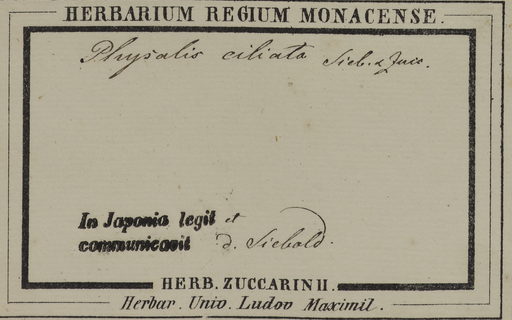 HERBARIUM REGIUM MONACENSE.
Physalis ciliata Sieb. & Zucc.
In Japonia legit et
communicavit d. Siebold.
HERB. ZUCCARINII.
Herbar. Univ. Ludov Maximil.